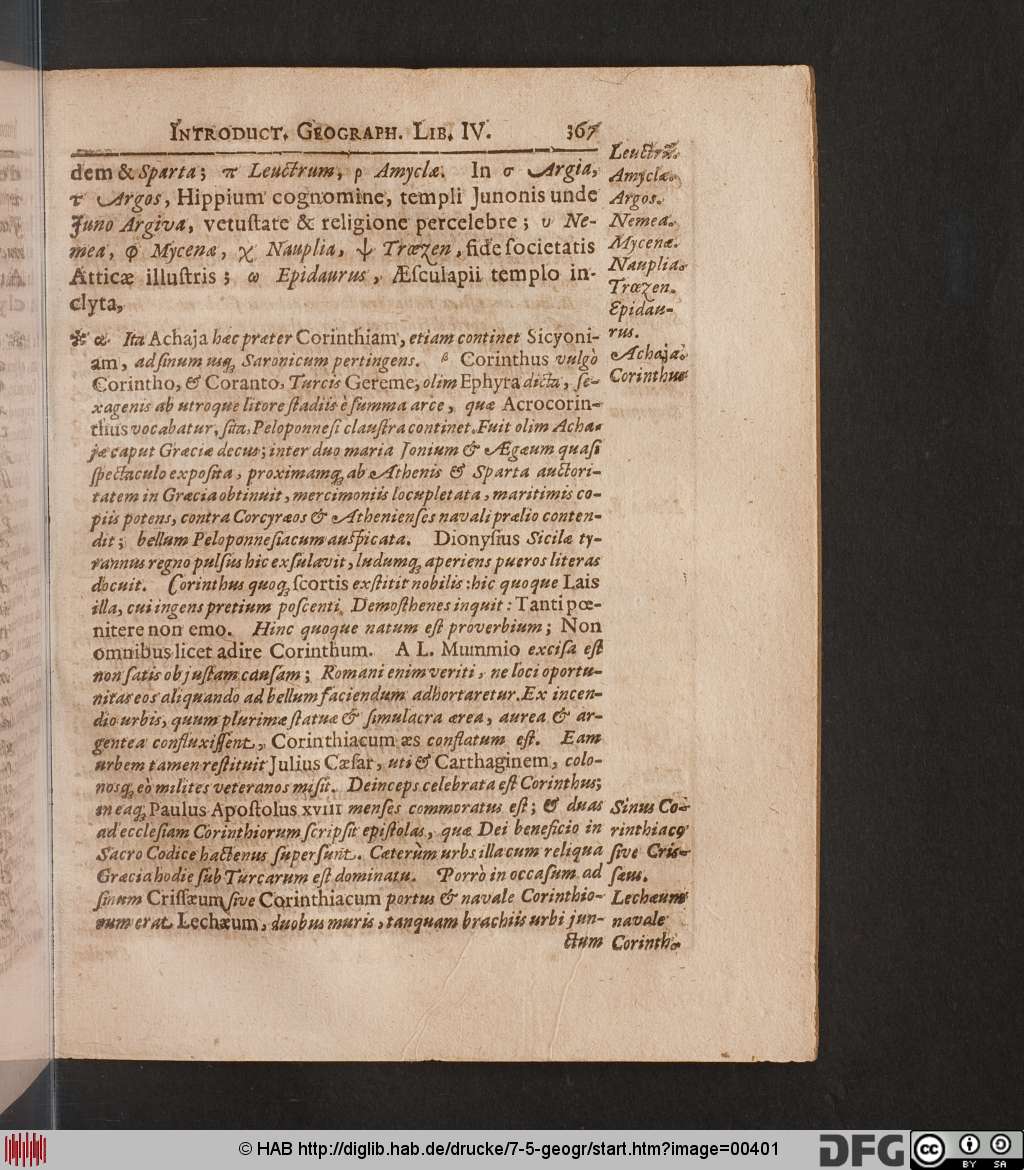 INTRODUCT. GEOGRAPH. LIB. IV. 367
dem & Sparta; π Leuctrum, ρ Amyclæ. In σ Argia,
τ Argos, Hippium cognomine, templi Junonis unde
Juno Argiva, vetuſtate & religione percelebre; υ Ne-
mea, φ Mycenæ, χ Nauplia, ψ Trœzen, fide ſocietatis
Atticæ illuſtris; ω Epidaurus, Æſculapii templo in-
clyta,
* α. Ita Achaja hæc præter Corinthiam, etiam continet Sicyoni-
am, ad ſinum uſq; Saronicum pertingens. β Corinthus vulgò
Corintho, & Coranto, Turcis Gereme, olim Ephyra dicta, ſe-
xagenis ab utroque litore ſtadiis è ſumma arce, quæ Acrocorin-
thus vocabatur, ſita, Peloponneſi clauſtra continet. Fuit olim Acha-
jæ caput Græciæ decus; inter duo maria Jonium & Ægæum quaſi
ſpectaculo expoſita, proximamq; ab Athenis & Sparta auctori-
tatem in Græcia obtinuit, mercimoniis locupletata, maritimis co-
piis potens, contra Corcyræos & Athenienſes navali prælio conten-
dit; bellum Peloponneſiacum auſpicata. Dionyſius Sicilæ ty-
rannus regno pulſus hic exſulavit, ludumq; aperiens pueros literas
docuit. Corinthus quoq; ſcortis exſtitit nobilis: hic quoque Lais
illa, cui ingens pretium poſcenti, Demoſthenes inquit: Tanti pœ-
nitere non emo. Hinc quoque natum eſt proverbium; Non
omnibus licet adire Corinthum. A L. Mummio exciſa eſt
non ſatis ob juſtam cauſam; Romani enim veriti, ne loci oportu-
nitas eos aliquando ad bellum faciendum adhortaretur. Ex incen-
dio urbis, quum plurimæ ſtatuæ & ſimulacra ærea, aurea & ar-
gentea confluxiſſent, Corinthiacum æs conflatum eſt. Eam
urbem tamen reſtituit Julius Cæſar, uti & Carthaginem, colo-
nosq; eò milites veteranos miſit. Deinceps celebrata eſt Corinthus;
in eaq; Paulus Apoſtolus XVIII menſes commoratus eſt; & duas
ad eccleſiam Corinthiorum ſcripſit epiſtolas, quæ Dei beneficio in
Sacro Codice hactenus ſuperſunt. Cæterùm urbs illa cum reliqua
Græcia hodie ſub Turcarum eſt dominatu. Porrò in occaſum ad
ſinum Criſſæum ſive Corinthiacum portus & navale Corinthio-
rum erat Lechæum, duobus muris, tanquam brachiis urbi jun-
ctum
Leuctrũ.
Amyclæ.
Argos.
Nemea.
Mycenæ.
Nauplia.
Trœzen.
Epidau-
rus.
Achaja.
Corinthus
Sinus Co-
rinthiacꝰ
ſive Criſ-
ſæus.
Lechæum
navale
Corinth.
© HAB http://diglib.hab.de/drucke/7-5-geogr/start.htm?image=00401
DFG
cc
BY SA